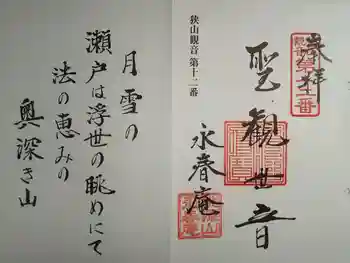 奉拝
聖観世音
永春庵
狭山觀音 第十二番
月雪の
瀬戸は浮世の眺めにて
法の恵みの
奥深き山